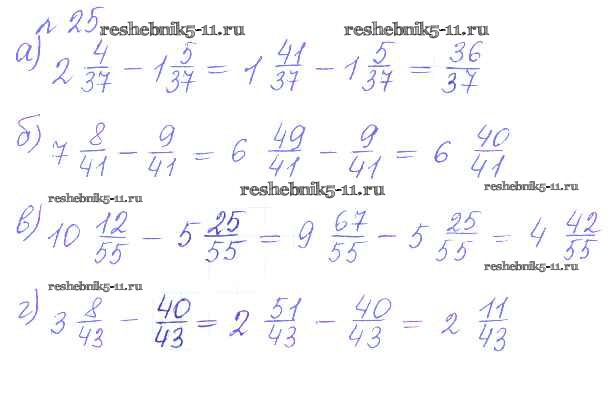 № 25 reshebnik5-11.ru reshebnik5-11.ru
а) 2 4/37 − 1 5/37 = 1 41/37 − 1 5/37 = 36/37
б) 7 8/41 − 9/41 = 6 49/41 − 9/41 = 6 40/41
reshebnik5-11.ru reshebnik5-11.ru reshebnik5-11.ru
в) 10 12/55 − 5 25/55 = 9 67/55 − 5 25/55 = 4 42/55
reshebnik5-11.ru reshebnik5-11.ru
г) 3 8/43 − 40/43 = 2 51/43 − 40/43 = 2 11/43